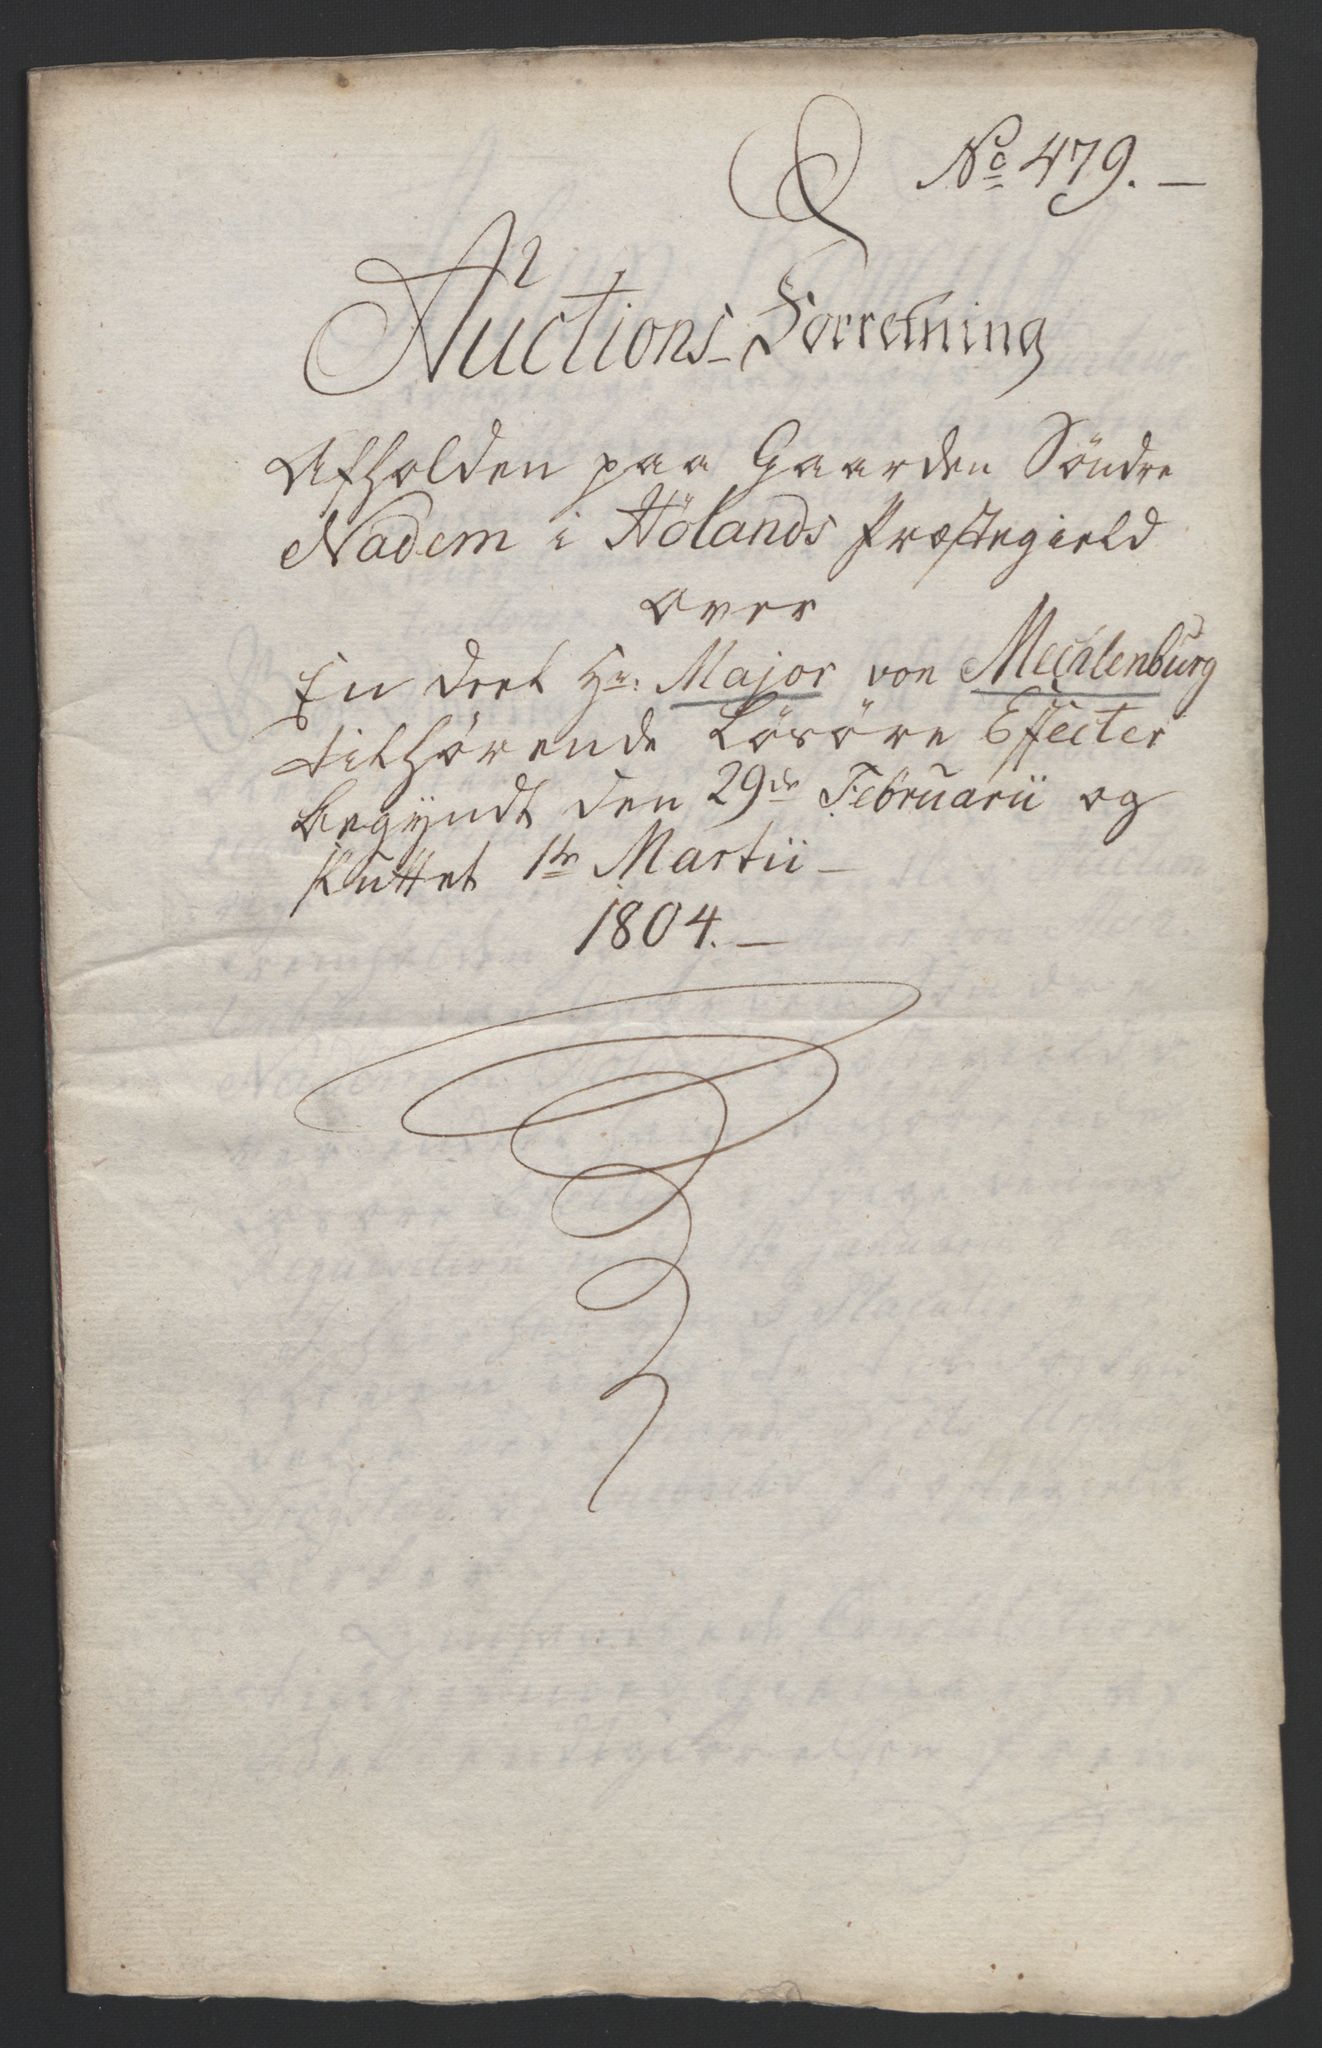 No 479. –
Auctions-Forretning
Afholden paa Gaarden Söndre
Nadem i Hölands Præstegield
over
En deel Hr: Major von Mechlenburg
tilhörende Lösöre Effecter
begyndt den 29de Februarii og
sluttet 1te Martii –
1804. –